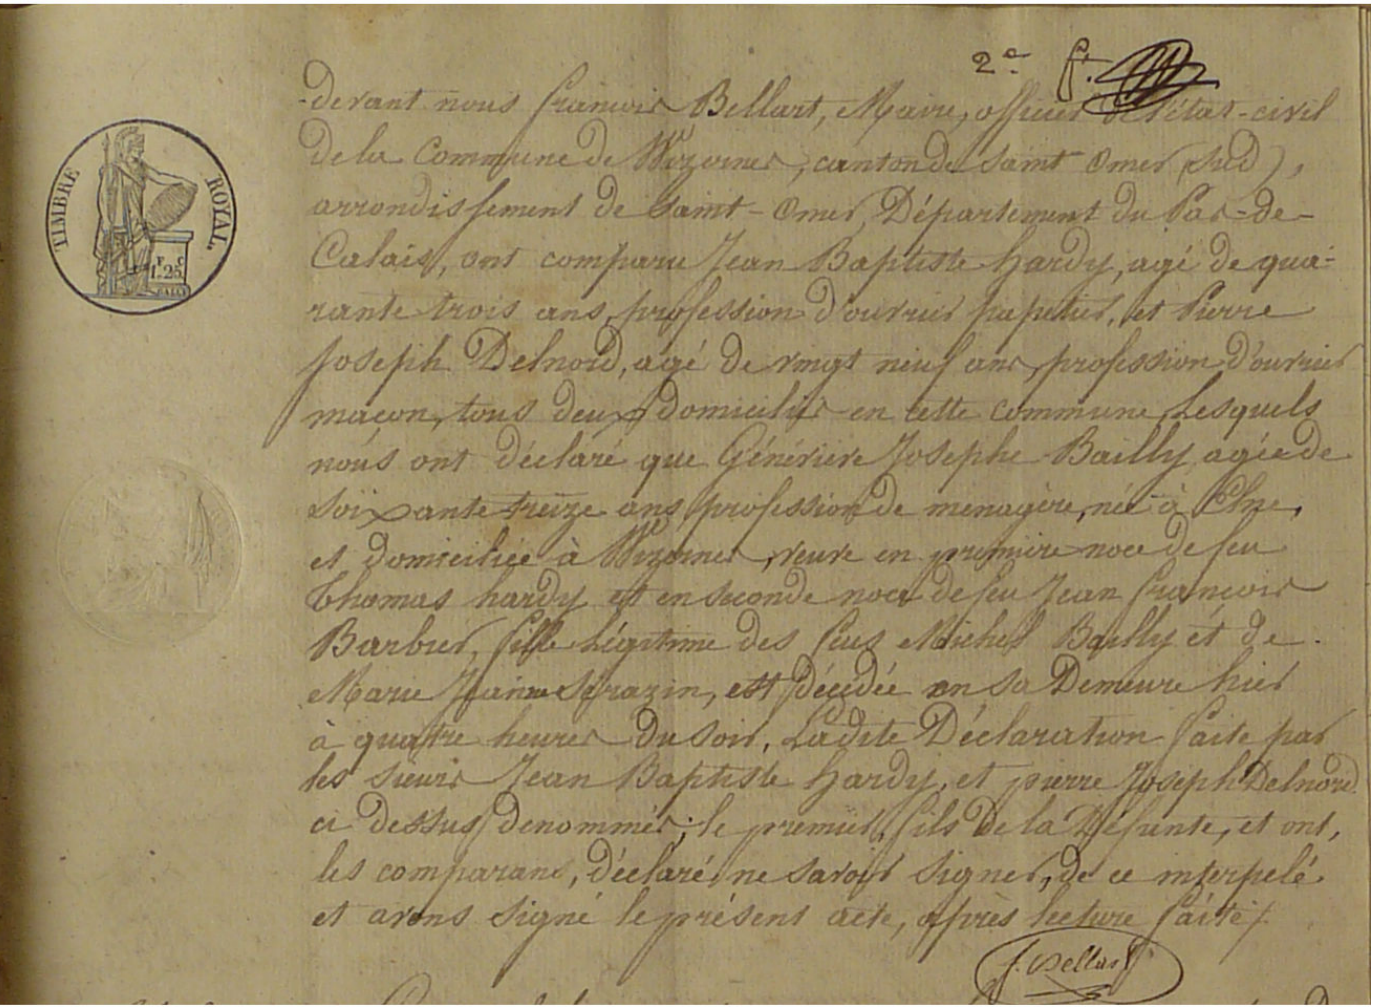 2e. f.
-devant nous francois Bellart, Maire, officier de l'état-civil
de la Commune de Wizernes, canton de saint omer (sud),
arrondissement de saint-omer, Département du Pas-de-
Calais, ont comparu Jean Baptiste hardy, agé de qua-
rante trois ans, profession d'ouvrier papetier, et Pierre
Joseph Delnord, agé de vingt neuf ans, profession d'ouvrier
maçon, tous deux domiciliés en cette commune, Lesquels
nous ont déclaré que Généviève Josephe Bailly agée de
soixante treize ans, profession de menagère, née à Elne,
et domiciliée à Wizernes, veuve en première noce de feu
Thomas hardy et en seconde noce de feu Jean francois
Barbier, fille légitime des feus Michel Bailly et de
Marie Jeanne Sarazin, est décédée en sa Demeure hier
à quatre heures du soir, Ladite Déclaration faite par
les sieurs Jean Baptiste hardy, et pierre Joseph Delnord
ci dessus denommés; le premier, fils de la Défunte, et ont,
les comparans, déclaré ne savoir signer, de ce interpelé
et avons signé le présent acte, après lecture faite.
f. Bellart
TIMBRE ROYAL.
F. C.
1. 25.